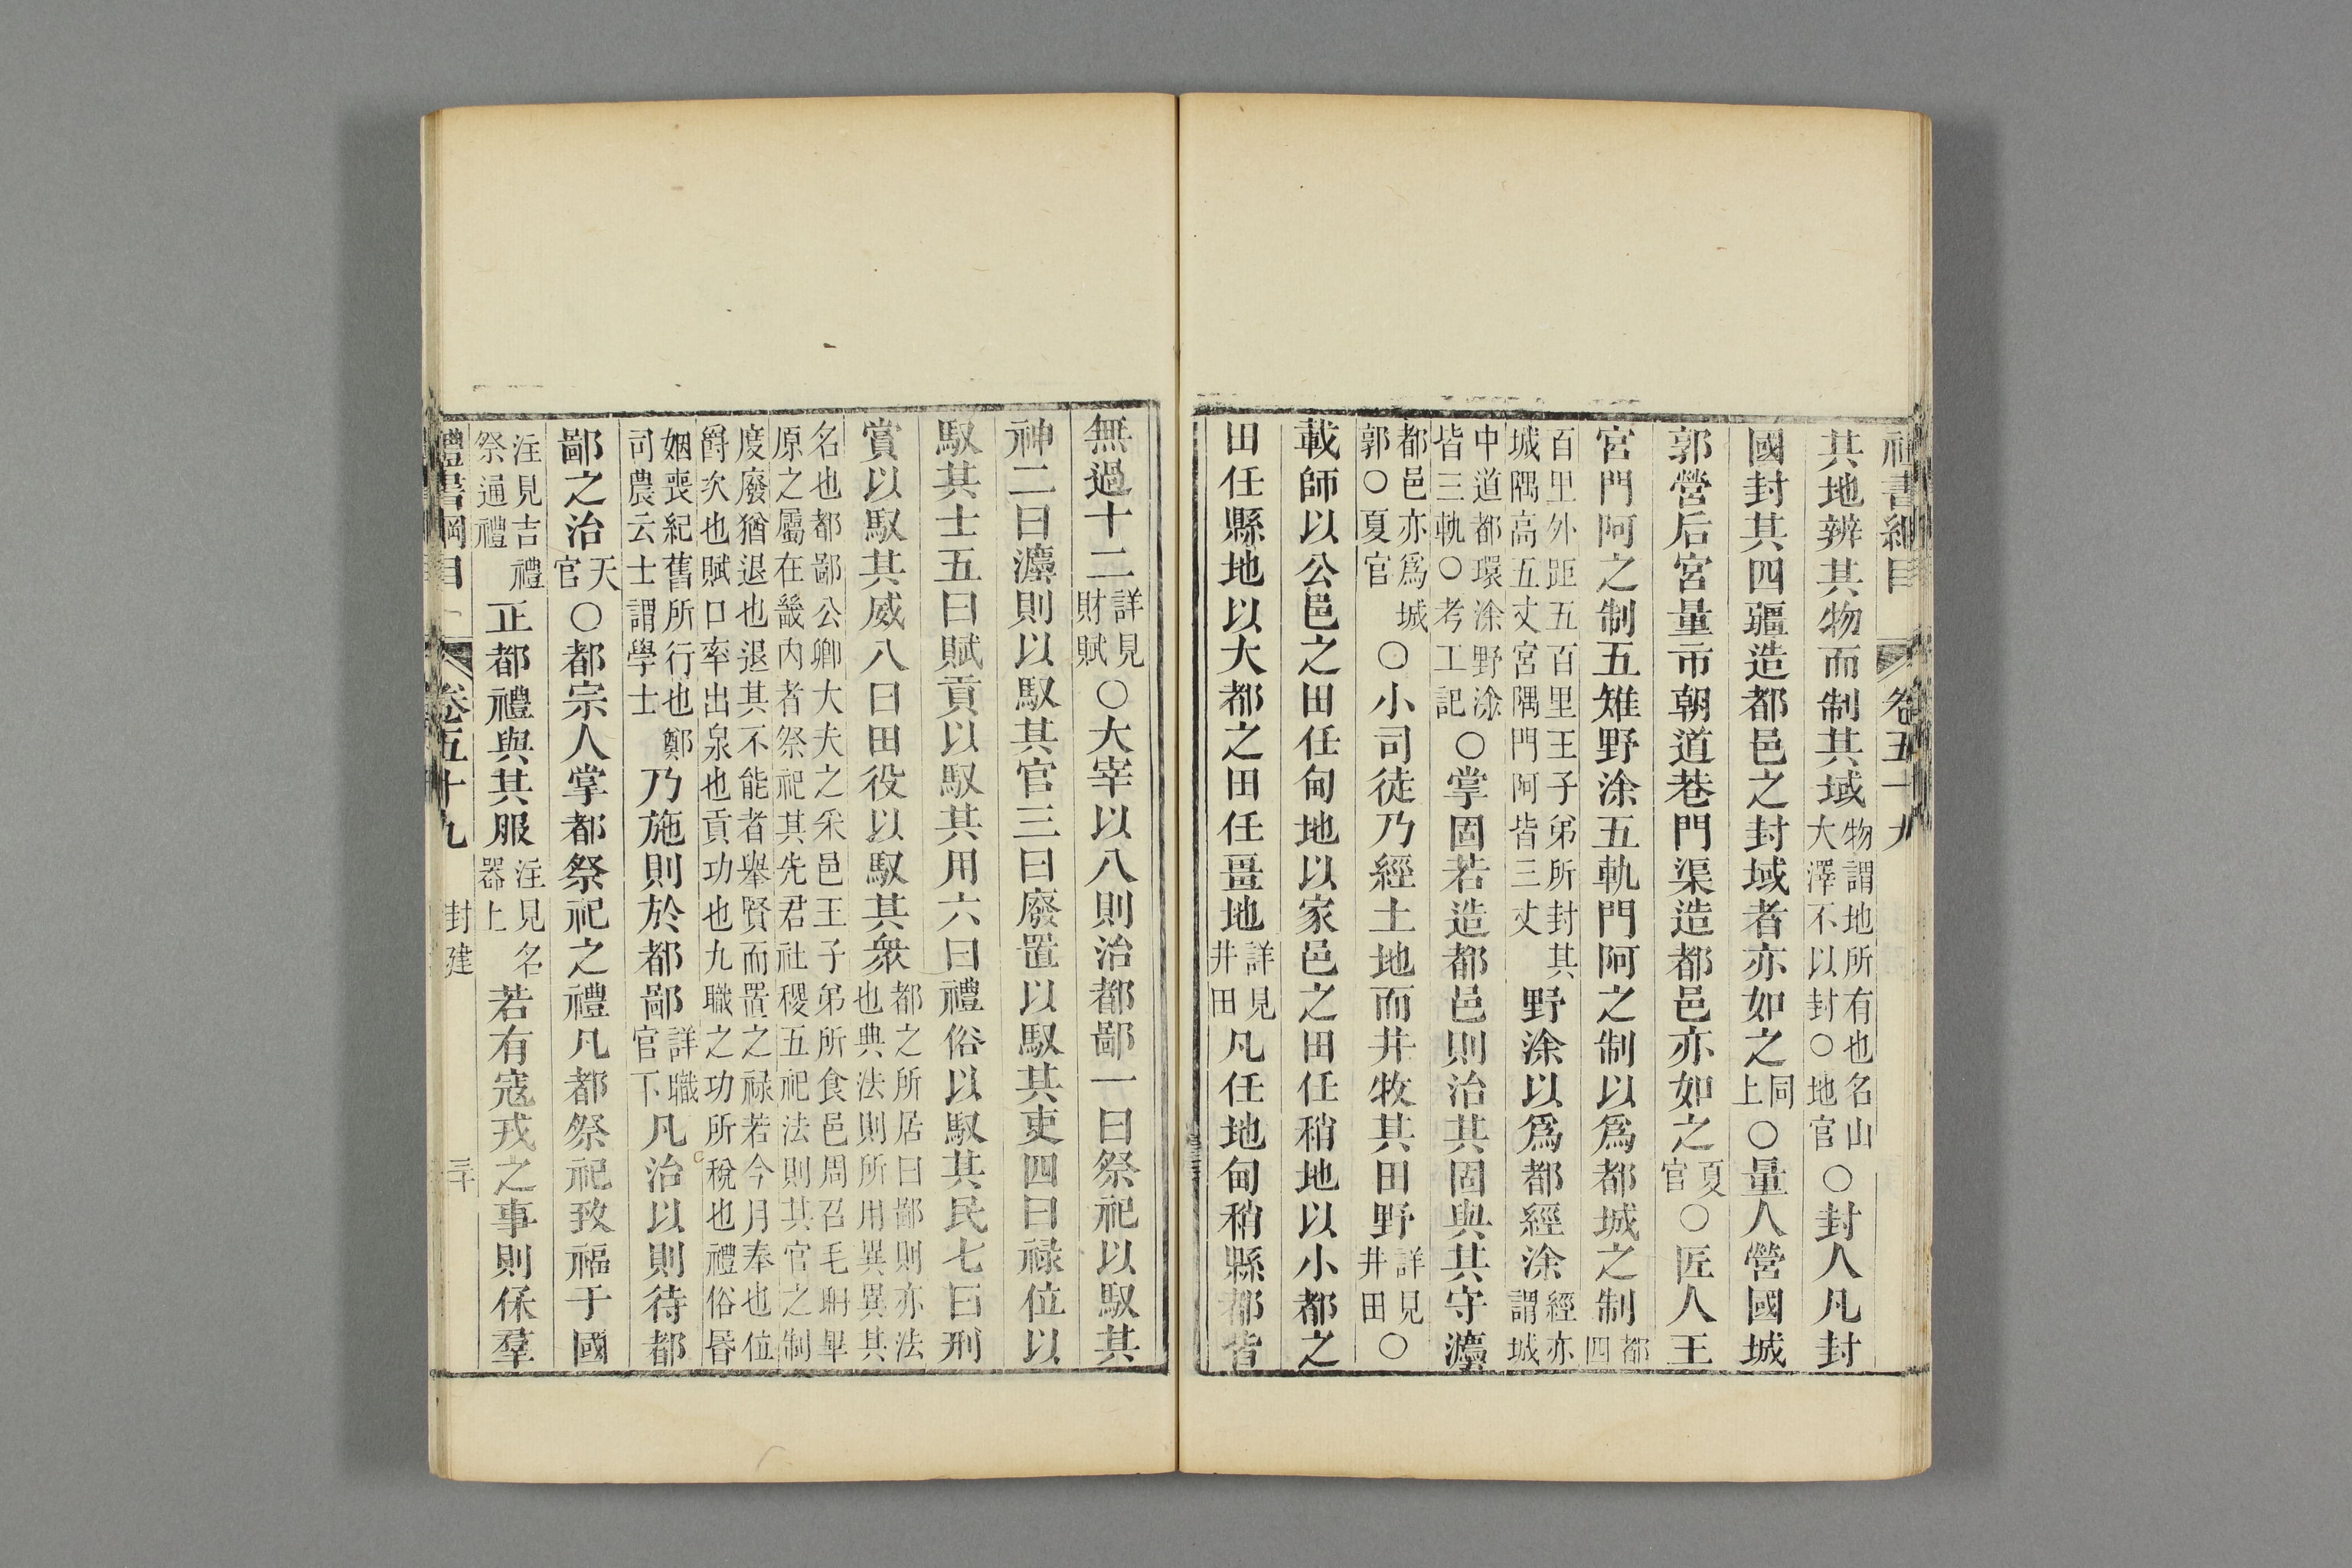 禮書綱目 卷五十九
其地辨其物而制其域物謂地所有也名山大澤不以封○地官○封人凡封
國封其四疆造都邑之封域者亦如之同上○量人營國城
郭營后宮量市朝道巷門渠造都邑亦如之夏官○匠人王
宮門阿之制五雉野涂五軌門阿之制以爲都城之制都四
百里外距五百里王子弟所封其城隅高五丈宮隅門阿皆三丈野涂以爲都經涂經亦謂城
中道都環涂野涂皆三軌○考工記○掌固若造都邑則治其固與其守灋
都邑亦爲城郭○夏官○小司徒乃經土地而井牧其田野詳見井田○
載師以公邑之田任甸地以家邑之田任稍地以小都之
田任縣地以大都之田任畺地詳見井田凡任地甸稍縣都皆
無過十二詳見財賦○大宰以八則治都鄙一曰祭祀以馭其
神二曰灋則以馭其官三曰廢置以馭其吏四曰祿位以
馭其士五曰賦貢以馭其用六曰禮俗以馭其民七曰刑
賞以馭其威八曰田役以馭其衆都之所居曰鄙則亦法也典法則所用異異其
名也都鄙公卿大夫之采邑王子弟所食邑周召毛聃畢原之屬在畿內者祭祀其先君社稷五祀法則其官之制
度廢猶退也退其不能者舉賢而置之祿若今月奉也位爵次也賦口率出泉也貢功也九職之功所稅也禮俗昏
姻喪紀舊所行也鄭司農云士謂學士乃施則於都鄙詳職官下凡治以則待都
鄙之治天官○都宗人掌都祭祀之禮凡都祭祀致福于國
注見吉禮祭通禮正都禮與其服注見名器上若有寇戎之事則保羣
禮書綱目 卷五十九 封建 三十